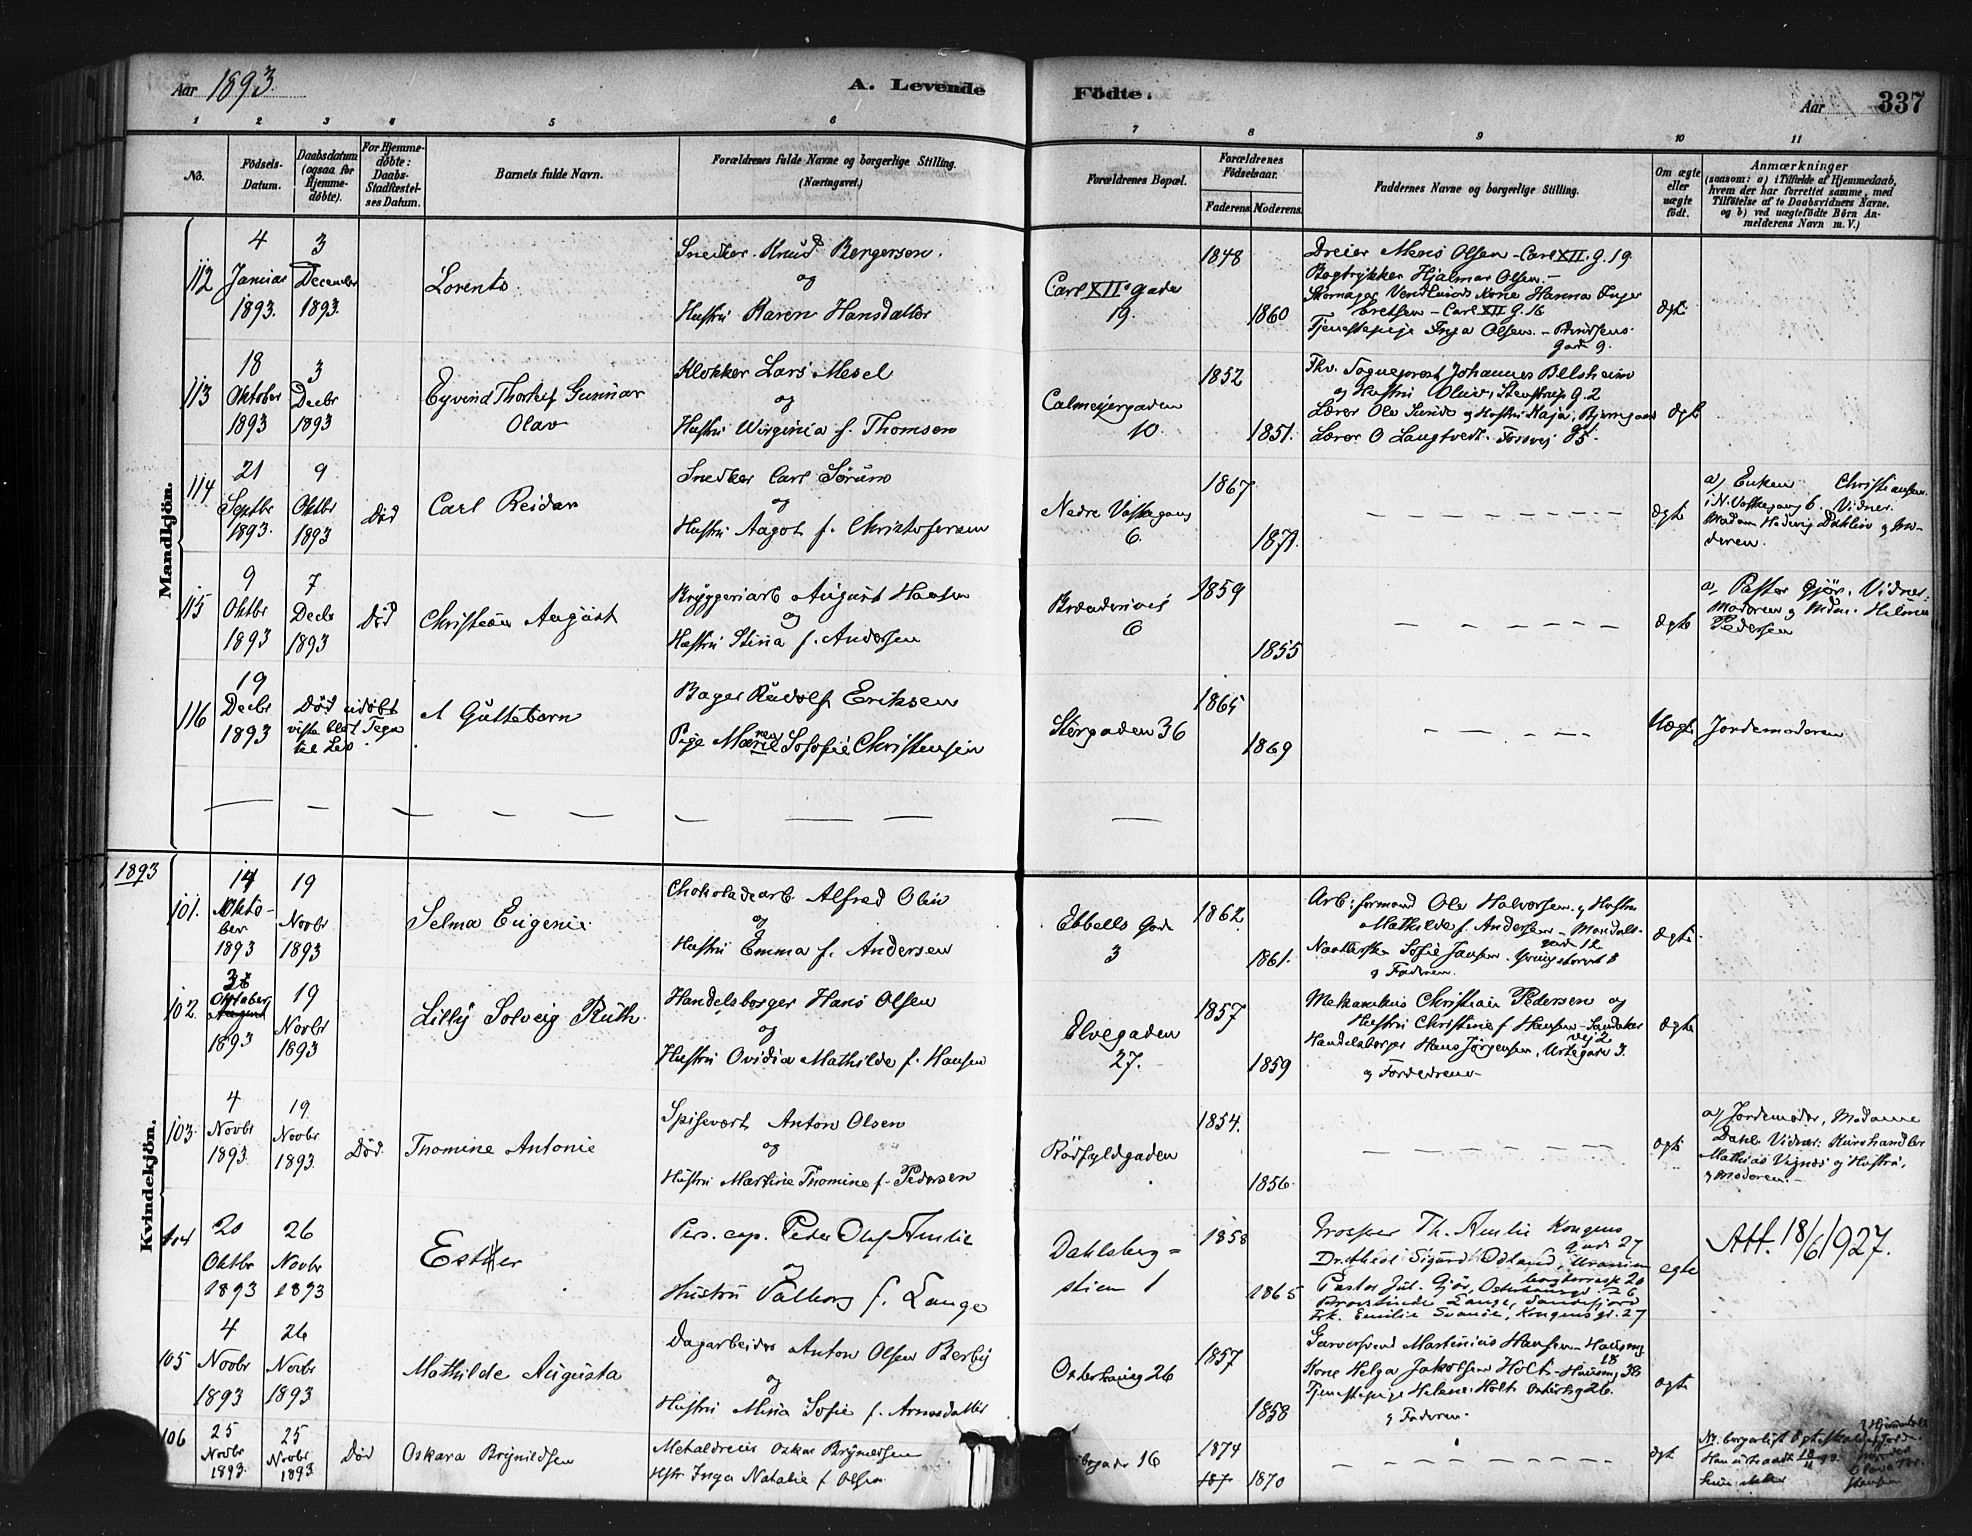 Aar 1893.
A. Levende Födte.
Aar
337
1 2 3 4 5 6 7 8 9 10 11
No.
Födsels-Datum.
Daabsdatum (ogsaa for Hjemmedøbte).
For Hjemmedøbte: Daabs-Stadfæstelses Datum.
Barnets fulde Navn.
Forældrenes fulde Navne og borgerlige Stilling.
(Næringsvei.)
Forældrenes Bopæl.
Forældrenes Födselsaar.
Faderens Moderens
Faddernes Navne og borgerlige Stilling.
Om ægte eller uægte födt.
Anmærkninger
(saasom: a) i Tilfælde af Hjemmedaab, hvem der har forrettet samme, med Tilföielse af to Daabsvidners Navne. og b) ved uægtefödte Börn Anmelderens Navn m. V.)
Mandkjön.
112
4 Januar 1893.
3 December 1893.
Lorents
Snedker Knud Bergersen.
og
Hustru Karen Hansdatter
Carl XII's gade 19.
1848
1860
Dreier Mens Olsen - Carl XII. G. 19
Bogtrykker Hjalmar Olsen -
Kone Hanna
- Carl XII G. 16
Tjenestepige Inga Olsen. -
Gade 9.
ægte
113
18 Oktober 1893
3 Decbr 1893
Eyvind Thorleif Gunnar Olav
Klokker Lars Mesel
og
Hustru Wirginia f. Thomsen
Calmeyergaden 10.
1852
1851.
Fhv. Sogneprest Johannes Belsheim
og Hustru Olivi, Stenstrup g. 2
Lærer Ole Sunde og Hustru Kaja,
Lærer O Langtvedt.
ægte
114
21 Septbr 1893.
9 Oktbr 1893
Død
Carl Reidar
Snedker Carl Sørum
og
Hustru Aagot f. Christofersen
Nedre Vaskegang 6.
1867
1871.
ægte
a) Enken Christiansen
i N. Vaskegang 6. Vidner.
Madam Hedvig Dahlin og Moderen.
115
9 Oktbr 1893
7 Decbr 1893
Død
Christian August
Bryggeriarb August Hansen
og
Hustru Stina f. Andersen
6
1859
1855
ægte
a) Pastor Gjör. Vidner.
Moderen og Hilma
Pedersen
116
19 Decbr 1893
Død udøbt
viste blot Tegn
til Liv.
Et Guttebarn
Bager Rudolf Eriksen
Pige Maren Sofie Christensen
Storgaden 36
1865
1869
Uægte
Jordemoderen
1893
Kvindekjön.
101.
14 Oktober 1893
19 Novbr 1893
Selma Eugenie
Chokoladearb Alfred Olin
og
Hustru Emma f. Andersen
Ebbells Gade 3
1862
1861.
Arb: formand Ole Halvorsen og Hustru
Mathilde f. Andersen - Mandals-
gade 12
Sofie Jansen. Youngstorvet 8
og Faderen.
ægte
102.
Oktober 1893
19 Novbr 1893
Lilly Solveig Ruth
Handelsborger Hans Olsen
og
Hustru Ovidia Mathilde f. Hansen
Elvegaden 27.
1857
1859
Mekanikus Christian Pedersen og
Hustru Christine f Hansen - Sandaker
vej 2
Handelsborger Hans Jörgensen, Urtegade 3.
og Forældrene
ægte
103.
4 Novbr 1893.
19 Novbr 1893.
Død
Thomine Antonie
Spisevert Anton Olsen
og
Hustru Martine Thomine f. Pedersen
Rörfyldgaden
1854.
1856.
ægte
a) Jordemoder, Madame
Dahl. Vidner: Kurvhandler
Mathias Vegnes og Hustru,
og Moderen.
104
20 Oktbr 1893
26 Novbr 1893
Esther
Per. cap. Peder Olaf Amlie
og
Hustru Valborg f. Lange
Dahlsberg=
stien 1
1858
1865
Th. Amlie Kongens
Gade 27
Sigurd Odland,
Pastor Jul. Gjör,
Lange, Sandefjord
Frk. Emilie Svanøe, Kongens g. 27
egte
Att. 18/6 1927.
105
4 Novbr 1893
26 Novbr 1893
Mathilde Augusta
Dagarbeider Anton Olsen Berby
og
Hustru Mina Sofie f. Arnesdatter
Osterhausg 26
1857
1858
Garversvend Martinius Hansen - Hausmg
18
Kone Helga Jakobsen Holt - Hausmg 38
Tjenestepige Helene Holt Osterhsg 26.
og Faderen.
ægte
106
25 Novbr 1893.
25 Novbr 1893
Død
Oskara Brynildsen
Metaldreier Oskar Brynildsen
og
Hstr. Inga Natalie f. Olsen
16
1874
1870
ægt